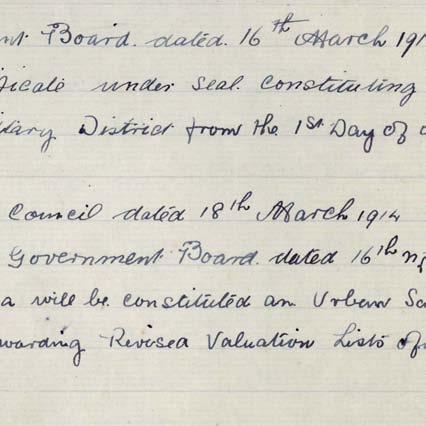 nt Board. dated. 16th March 191
ficate under seal constituting
itary District from the 1st Day of
Council dated 18th March 1914
Government Board. dated 16th
a will be constituted an Urban Sa
warding Revised Valuation Lists of